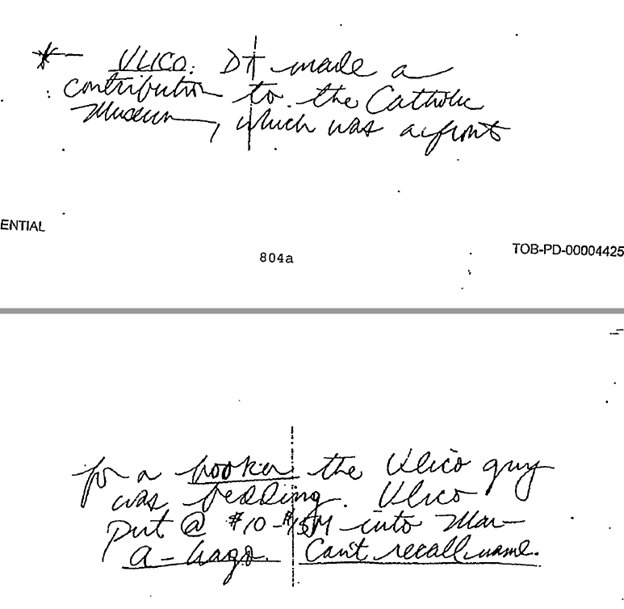 * – ULICO: DT made a
contribution to the Catholic
Museum, which was a front
ENTIAL
804a
TOB-PD-00004425
for a hooker the Ulico guy
was bedding. Ulico
put @ $10-$15M into Mar-
a-Lago. Can't recall name.